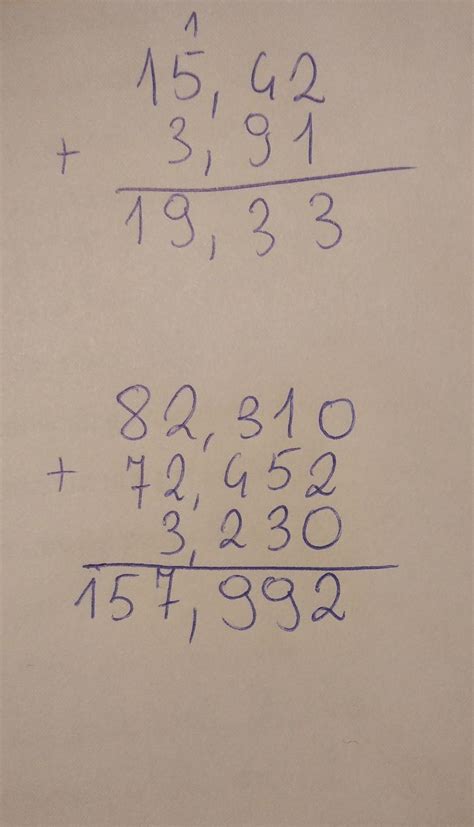 1
15,42
+ 3,91
19,33
82,310
+ 72,452
3,230
157,992